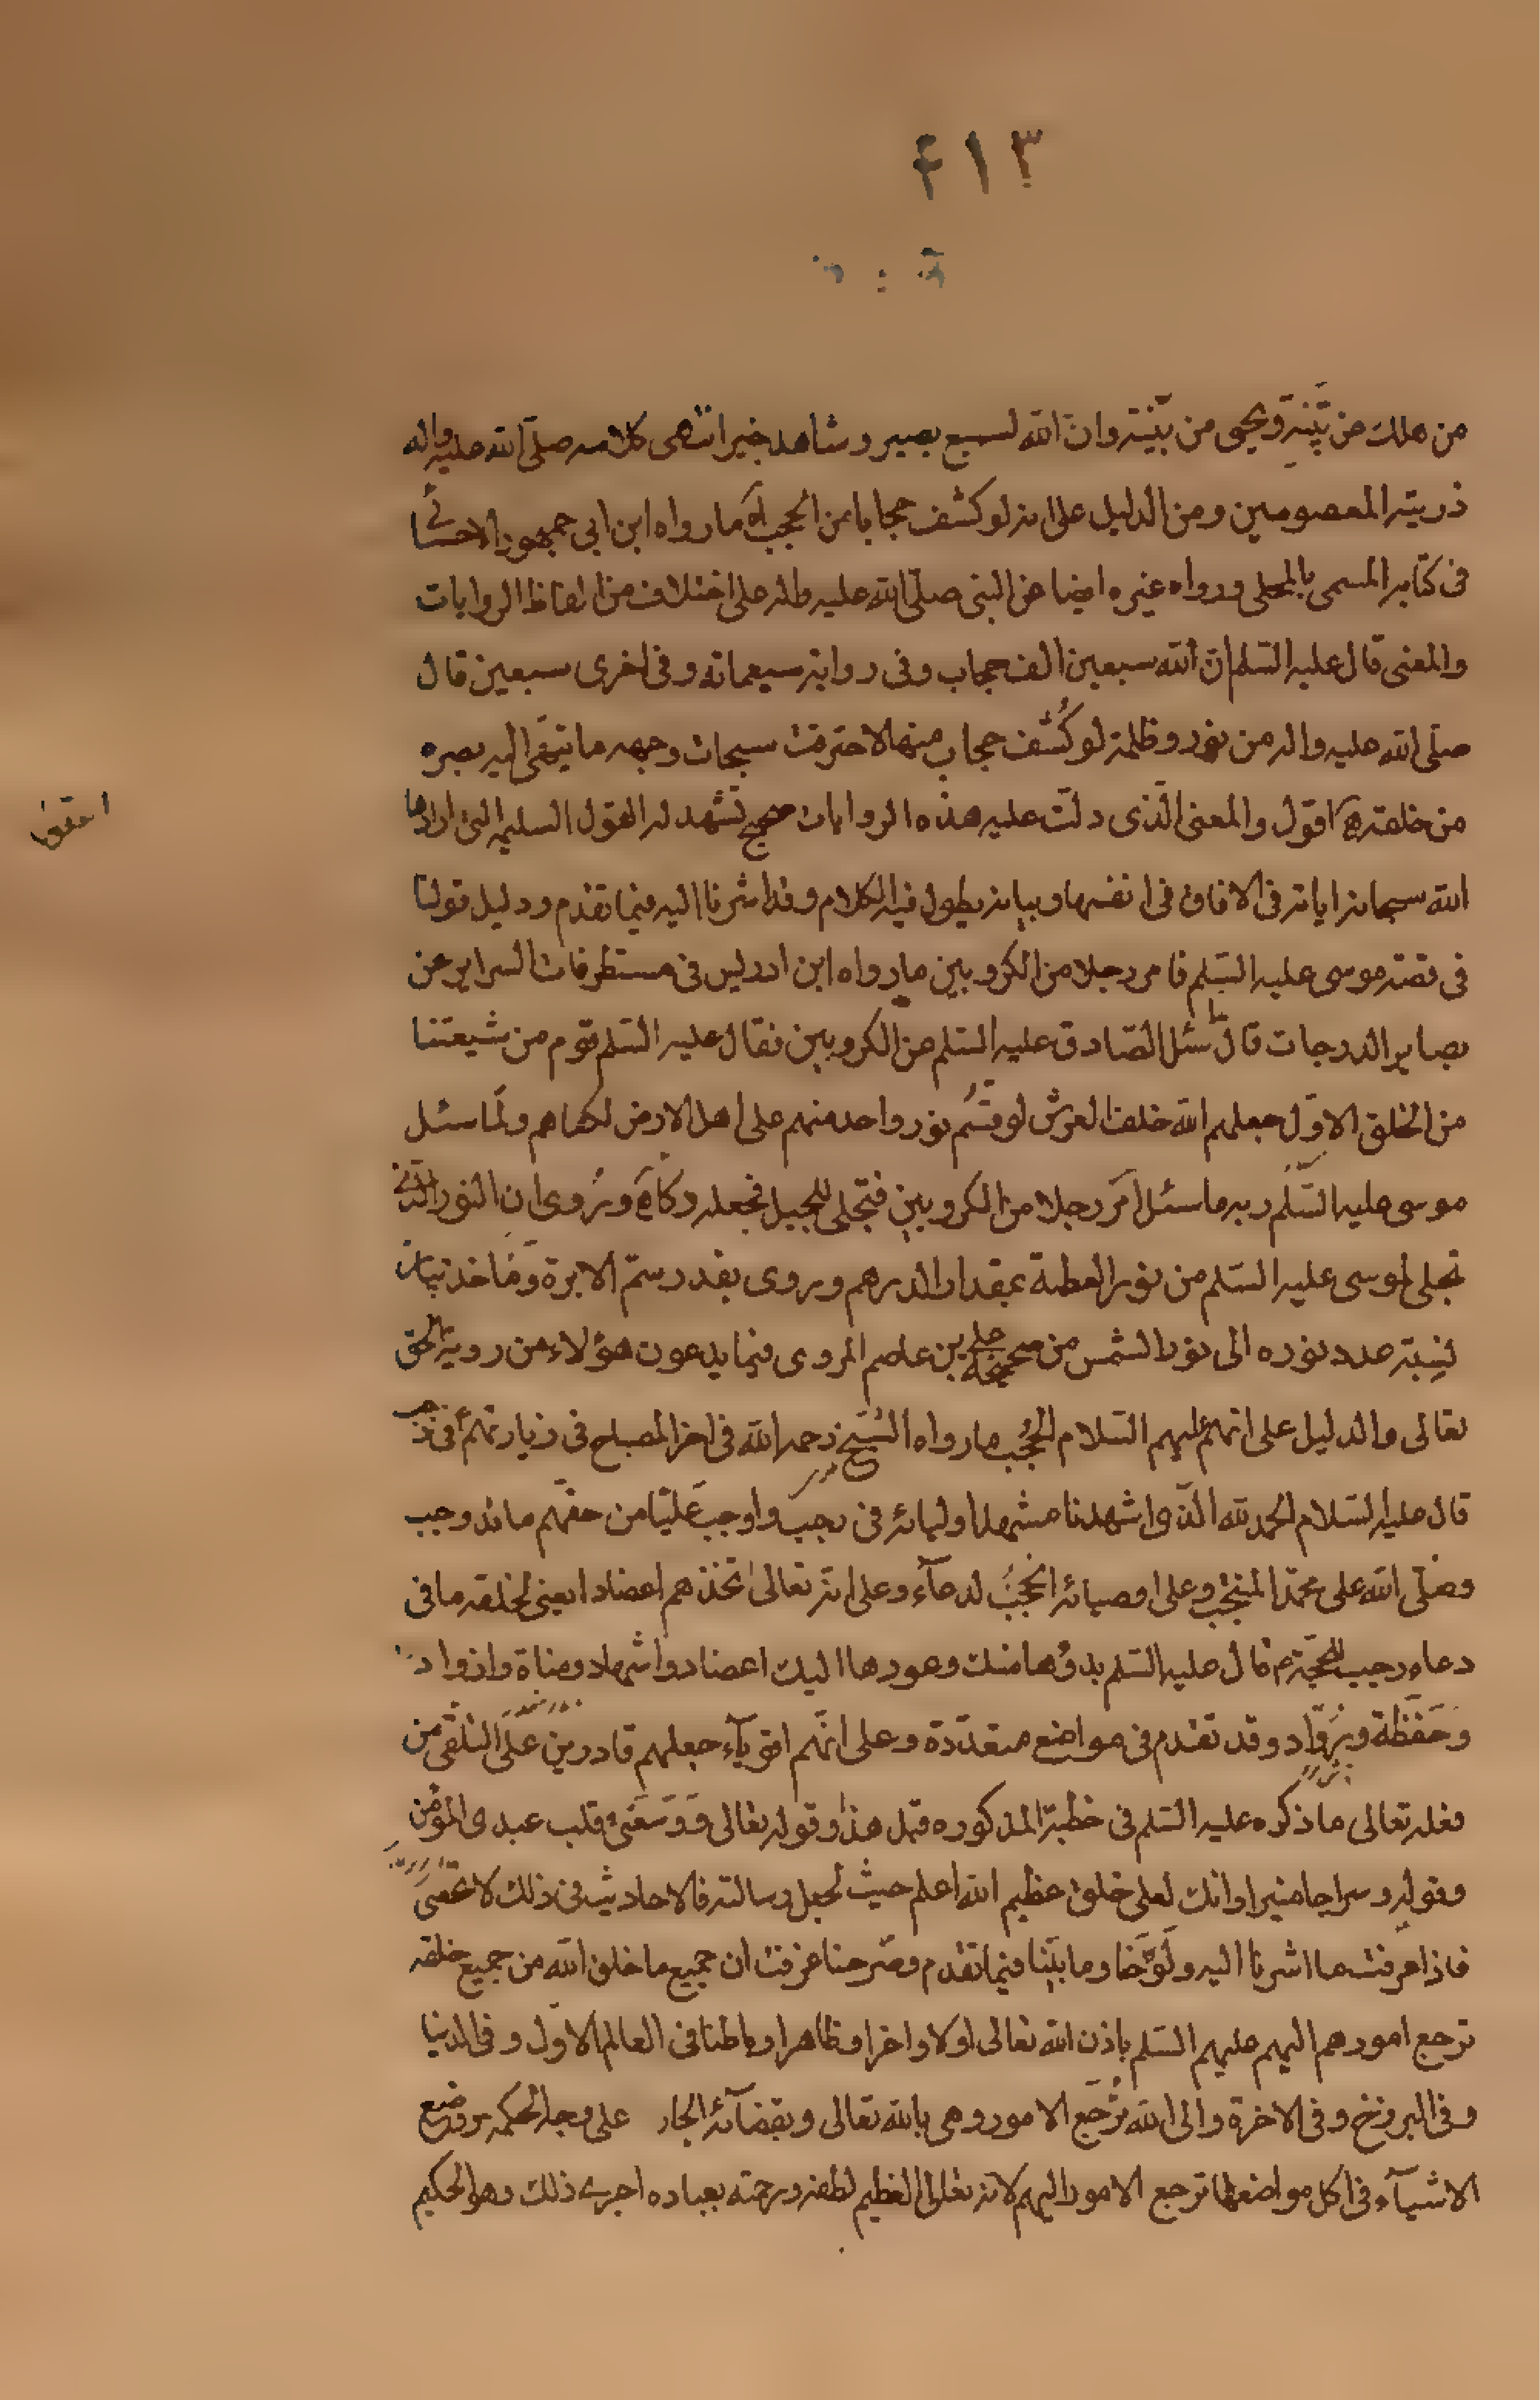 ٤١٣
من هلك عن بيّنة ويحيى من بيّنة وان الله لسميع بصير وشاهد خبير انتهى كلامه صلى الله عليه واله
ذريته المعصومين ومن الدليل على انه لو كشف حجابا من الحجب اه ما رواه ابن ابى جمهور الاحسائى
فى كتابه المسمى بالمجلى ورواه غيره ايضا عن النبى صلى الله عليه واله على اختلاف من الفاظ الروايات
والمعنى قال عليه السلم ان لله سبعين الف حجاب وفى رواية سبعمائة وفى اخرى سبعين قال
صلى الله عليه واله من نور وظلمة لو كُشف حجاب منها لاحترقت سبحات وجهه ما انتهى اليه بصره
من خلقه اقول والمعنى الذى دلت عليه هذه الروايات صحيح تشهد له العقول السليمة التى اراها
الله سبحانه اياته فى الافاق فى انفسها وبيانه يطول فيه الكلام وقد اشرنا اليه فيما تقدم ودليل قولنا
فى قصة موسى عليه السلم فامر رجلا من الكروبين ما رواه ابن ادريس فى مستطرفات السراير من
بصاير الدرجات قال لما سئل الصادق عليه السلم عن الكروبين فقال عليه السلم قوم من شيعتنا
من الخلق الاول جعلهم الله خلف العرش لو قسّم نور واحد منهم على اهل الارض لكفاهم ولما سئل
موسى عليه السلم ربه ما سئل امر رجلا من الكروبين فتجلى للجبل فجعله دكا ويُروى ان النور الذى
تجلى لموسى عليه السلم من نور العظمة بمقدار الدرهم وروى بقدر سمّ الابرة وماخذ بيان
نسبة عدد نوره الى نور الشمس من صحيحة على بن عاصم المروى فيما يدعون هؤلاء من روية الحق
تعالى والدليل على انهم عليهم السلام الحُجُب ما رواه الشيخ رحمه الله فى اخر المصباح فى زيارتهم فى رجب
قال عليه السلام الحمد لله الذى اشهدنا مشهد اوليائه فى رجب واوجب علينا من حقهم ما قد وجب
وصلى الله على محمد المنتجب وعلى اوصيائه الحُجب الدعآء وعلى انه تعالى اتخذهم اعضادا يعنى لخلقه ما فى
دعاء رجب للحجة قال عليه السلم بدؤها منك وعودها اليك اعضاد واشهاد ومناة واذواد
وحَفَظَة وروّاد وقد تقدم فى مواضع متعددة وعلى انهم اقويآء جعلهم قادرين على التلقى من
فعله تعالى ما ذكره عليه السلم فى خطبة المذكوره قبل هذا وقوله تعالى ووسعنى قلب عبدى المؤمن
وقوله وسراجا منيرا وانك لعلى خلق عظيم الله اعلم حيث يجعل رسالته فالاحاديث فى ذلك لا تحصى
فاذا عرفت ما اشرنا اليه ولوّحنا وما بيّنا فيما تقدم وصرحنا عرفت ان جميع ما خلق الله من جميع خلقه
ترجع امورهم اليهم عليهم السلم باذن الله تعالى اولا واخرا وظاهرا وباطنا فى العالم الاول وفى الدنيا
وفى البرزخ وفى الاخرة والى الله تُرجَع الامور وهى بالله تعالى وبقضآئه الجار على وجه الحكمة ووضع
الاشيآء فى اكل مواضعها ترجع الامور اليهم لانه تعالى العظيم لطفه ورحمته بعباده اجرى ذلك وهو الحكيم